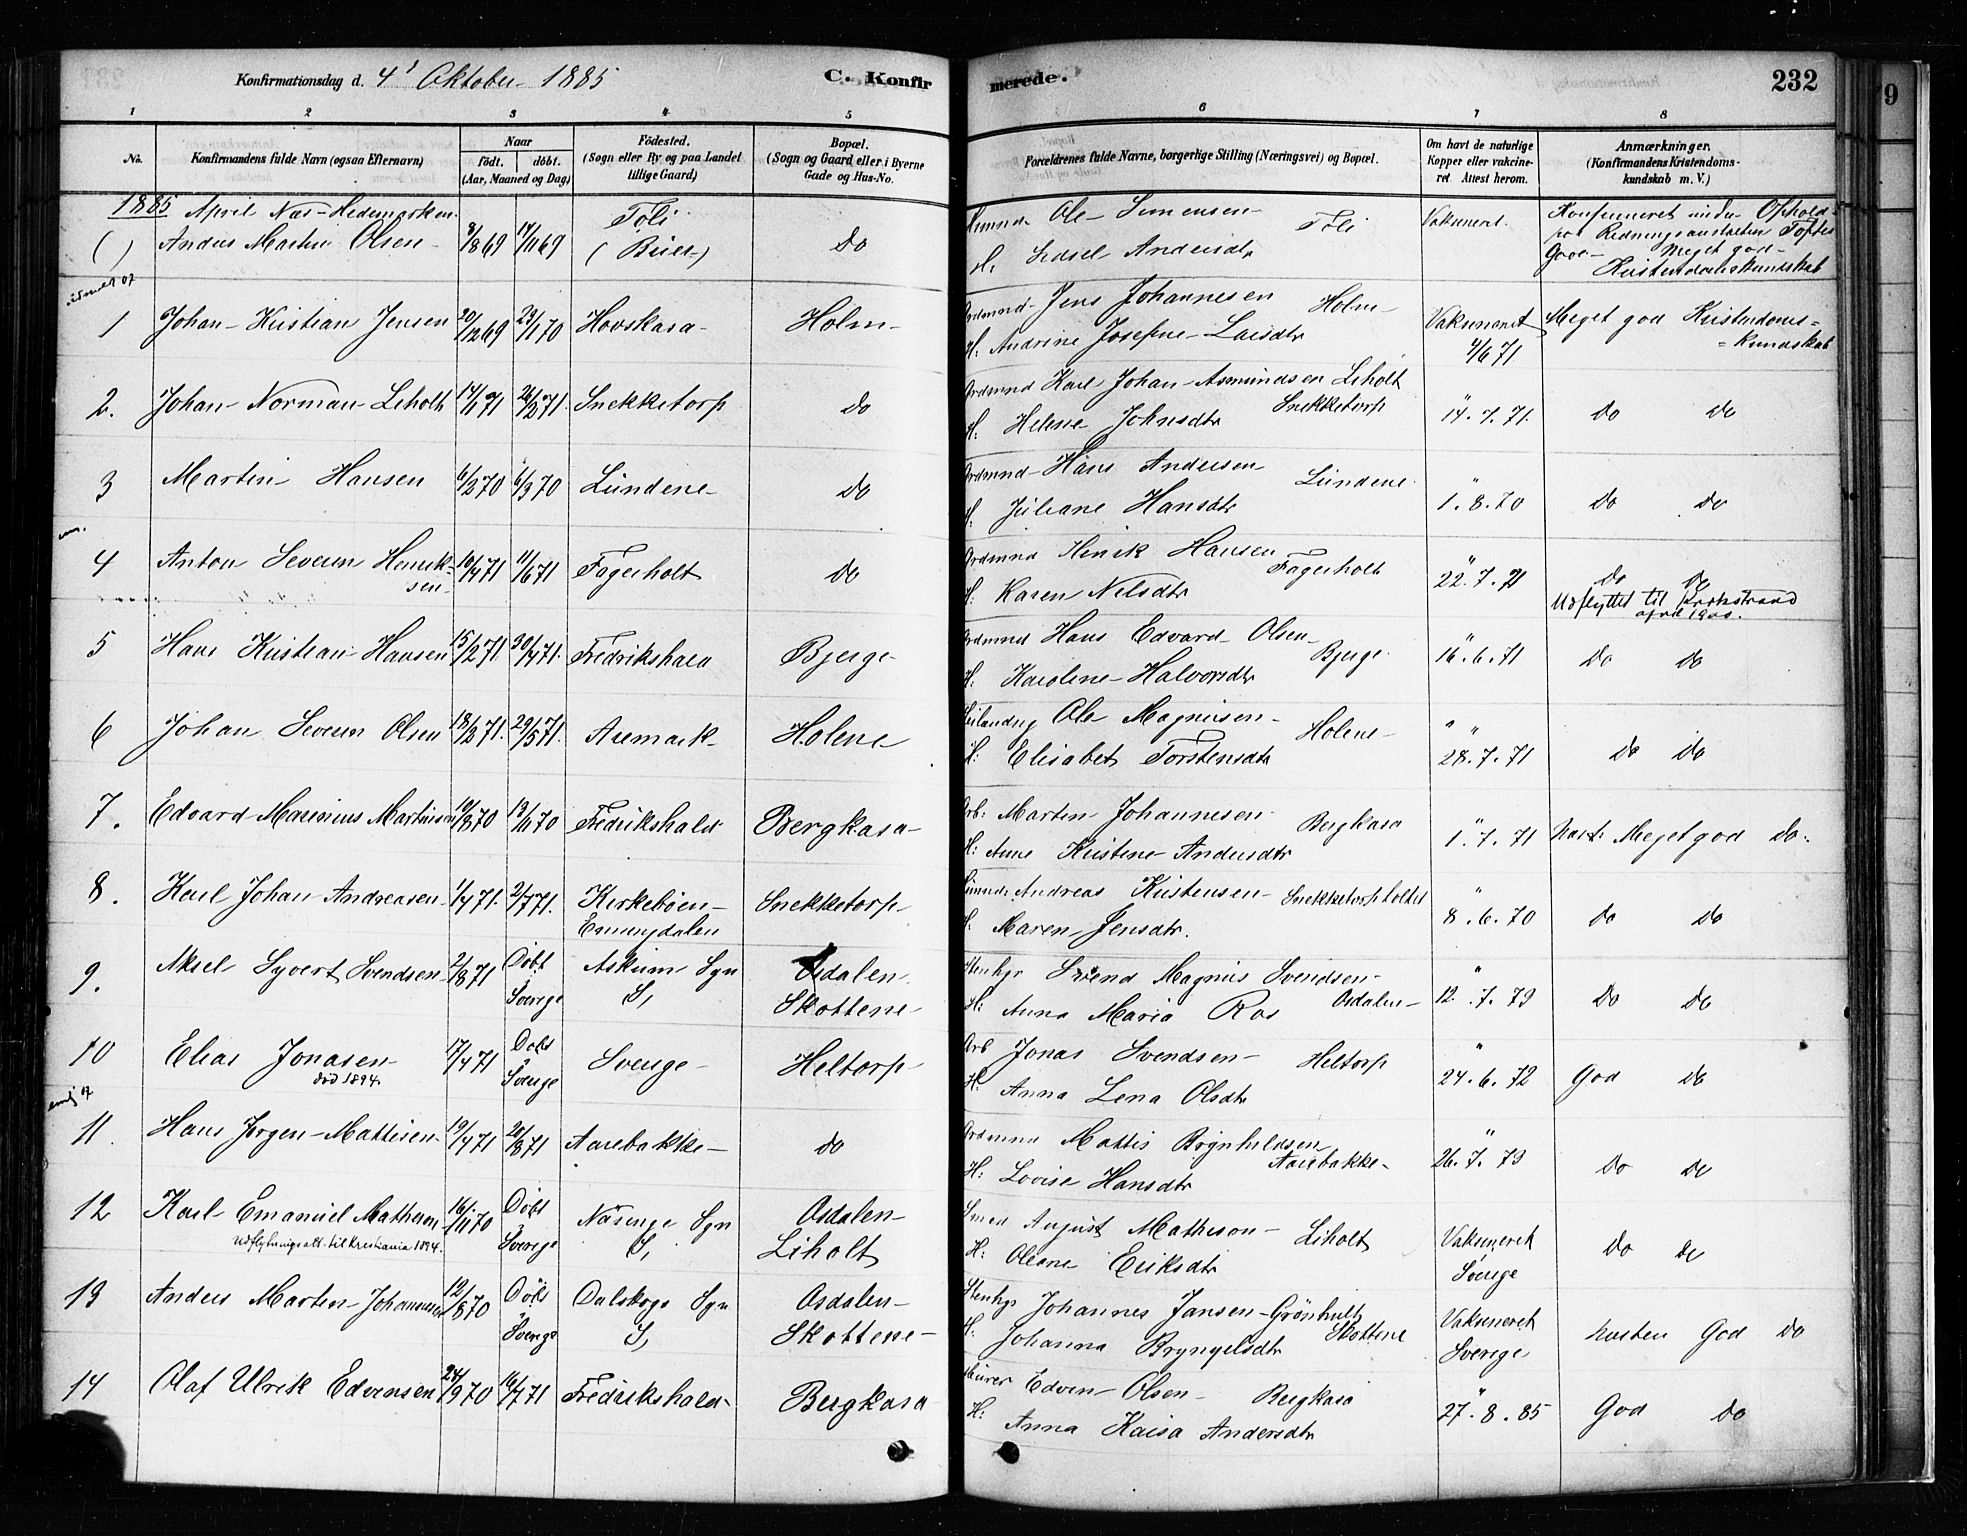 Konfirmationsdag d. 4' Oktober 1885 C. Konfirmerede. 232
9
1 2 3 4 5 6 7 8
No. Konfirmandens fulde Navn (ogsaa Efternavn) Naar født. døbt. (Aar, Maaned og Dag) Födested. (Sogn eller By og paa Landet tillige Gaard) Bopæl. (Sogn og Gaard eller i Byerne Gade og Hus-No. Forældrenes fulde Navne, borgerlige Stilling (Næringsvei) og Bopæl. Om havt de naturlige Kopper eller vakcineret. Attest herom. Anmærkninger. (Konfirmandens Kristendomskundskab m. V.)
1885 April Næs-Hedemarken
( ) Anders Martin Olsen 8/8 69 14/11 69 Töli Do Ole Simensen Töli Vakcineret. Konfirmeret under Ophold paa Redningsanstalten Toftes Gave Meget god Kristendomskundskab
H. Sidsel Andersdtr
1 Johan Kristian Jensen 20/12 69 23/1 70 Hovskasa Holm Ordmnd Jens Johannesen Holm Vakcineret 4/6 71 Meget god Kristendoms=
H: Andrine Josefine Larsdtr =kundskab
2. Johan Norman Liholt 14/1 71 26/2 71. Snekketorp Do Ordmnd Karl Johan Asmundsen Liholt " 14.7.71. Do Do
H. Helene Johnsdtr Snekketorp
3 Martin Hansen 6/2 70 6/3 70 Lundene Do Ordmnd Hans Andersen Lundene " 1.8.70 Do Do
H. Juliane Hansdtr
4 Anton Severin Henriksen 10/4 71 11/6 71 Fagerholt Do Ordmnd Henrik Hansen Fagerholt " 22.7.71 Do Do
H: Karen Nilsdtr Udflyttet til Krokstrand april 1900.
5 Hans Kristian Hansen 15/2 71 30/4 71. Fredrikshald Bjerge Ordmnd Hans Edvard Olsen Bjerge " 16.6.71 Do Do
H. Karoline Halvorsdtr
6 Johan Severin Olsen 18/3 71. 29/5 71. Aremark Holene Ole Magnusen Holene " 28.7.71 Do Do
H: Elisabet Torstensdtr
7. Edvard Masinius Martinsen 19/8 70 13/11 70 Fredrikshald Bergkasa Arb: Martin Johannesen Bergkasa " 1.7.71 Næst Meget god Do.
H: Anne Kristine Andersdtr
8. Karl Johan Andreasen 1/4 71. 2/7 71. Kirkebøen Enningdalen Snekketorp Andreas Kristensen Snekketorpholtet " 8.6.70 Do Do
H. Maren Jensdtr.
9. Aksel Syvert Svendsen 2/8 71 Döbt Sverige Askum Sgn S, Osdalen Skottene Stenhgr Svend Magnus Svendsen " 12.7.73 Do Do
H: Anna Maria Ros Osdalen
10 Elias Jonasen 17/4 71 Döbt Sverige Sverige Heltorp Arb Jonas Svendsen Heltorp " 24.6.72 God Do
død 1894. H. Anna Lena Olsdtr
11. Hans Jørgen Mattisen 19/4 71 20/8 71 Aarebakke do Ordmnd Mattis Brynhildsen Aarebakke " 26.7.73 Do Do
H: Lovise Hansdtr
12 Karl Emanuel Matheson 16/11 70 Döbt Sverige Näsinge Sgn S, Osdalen Liholt Smed August Matheson Liholt Vakcineret Sverige Do Do
Udflytningsatt. til Kristiania 1894. H: Oleane Eriksdtr
13 Anders Martin Johannesen 12/8 70 Döbt Sverige Dalskogs Sgn S, Osdalen Skottene Stenhgr Johannes Jansen Grönhult Vakcineret Sverige Næsten God Do
H. Johanna Bryngelsdtr Skottene
14 Olaf Ulrik Edvinsen 24/9 70 16/7 71 Fredrikshald Bergkasa Murer Edvin Olsen Bergkasa " 27.8.85 God Do
H: Anna Kaisa Andersdtr